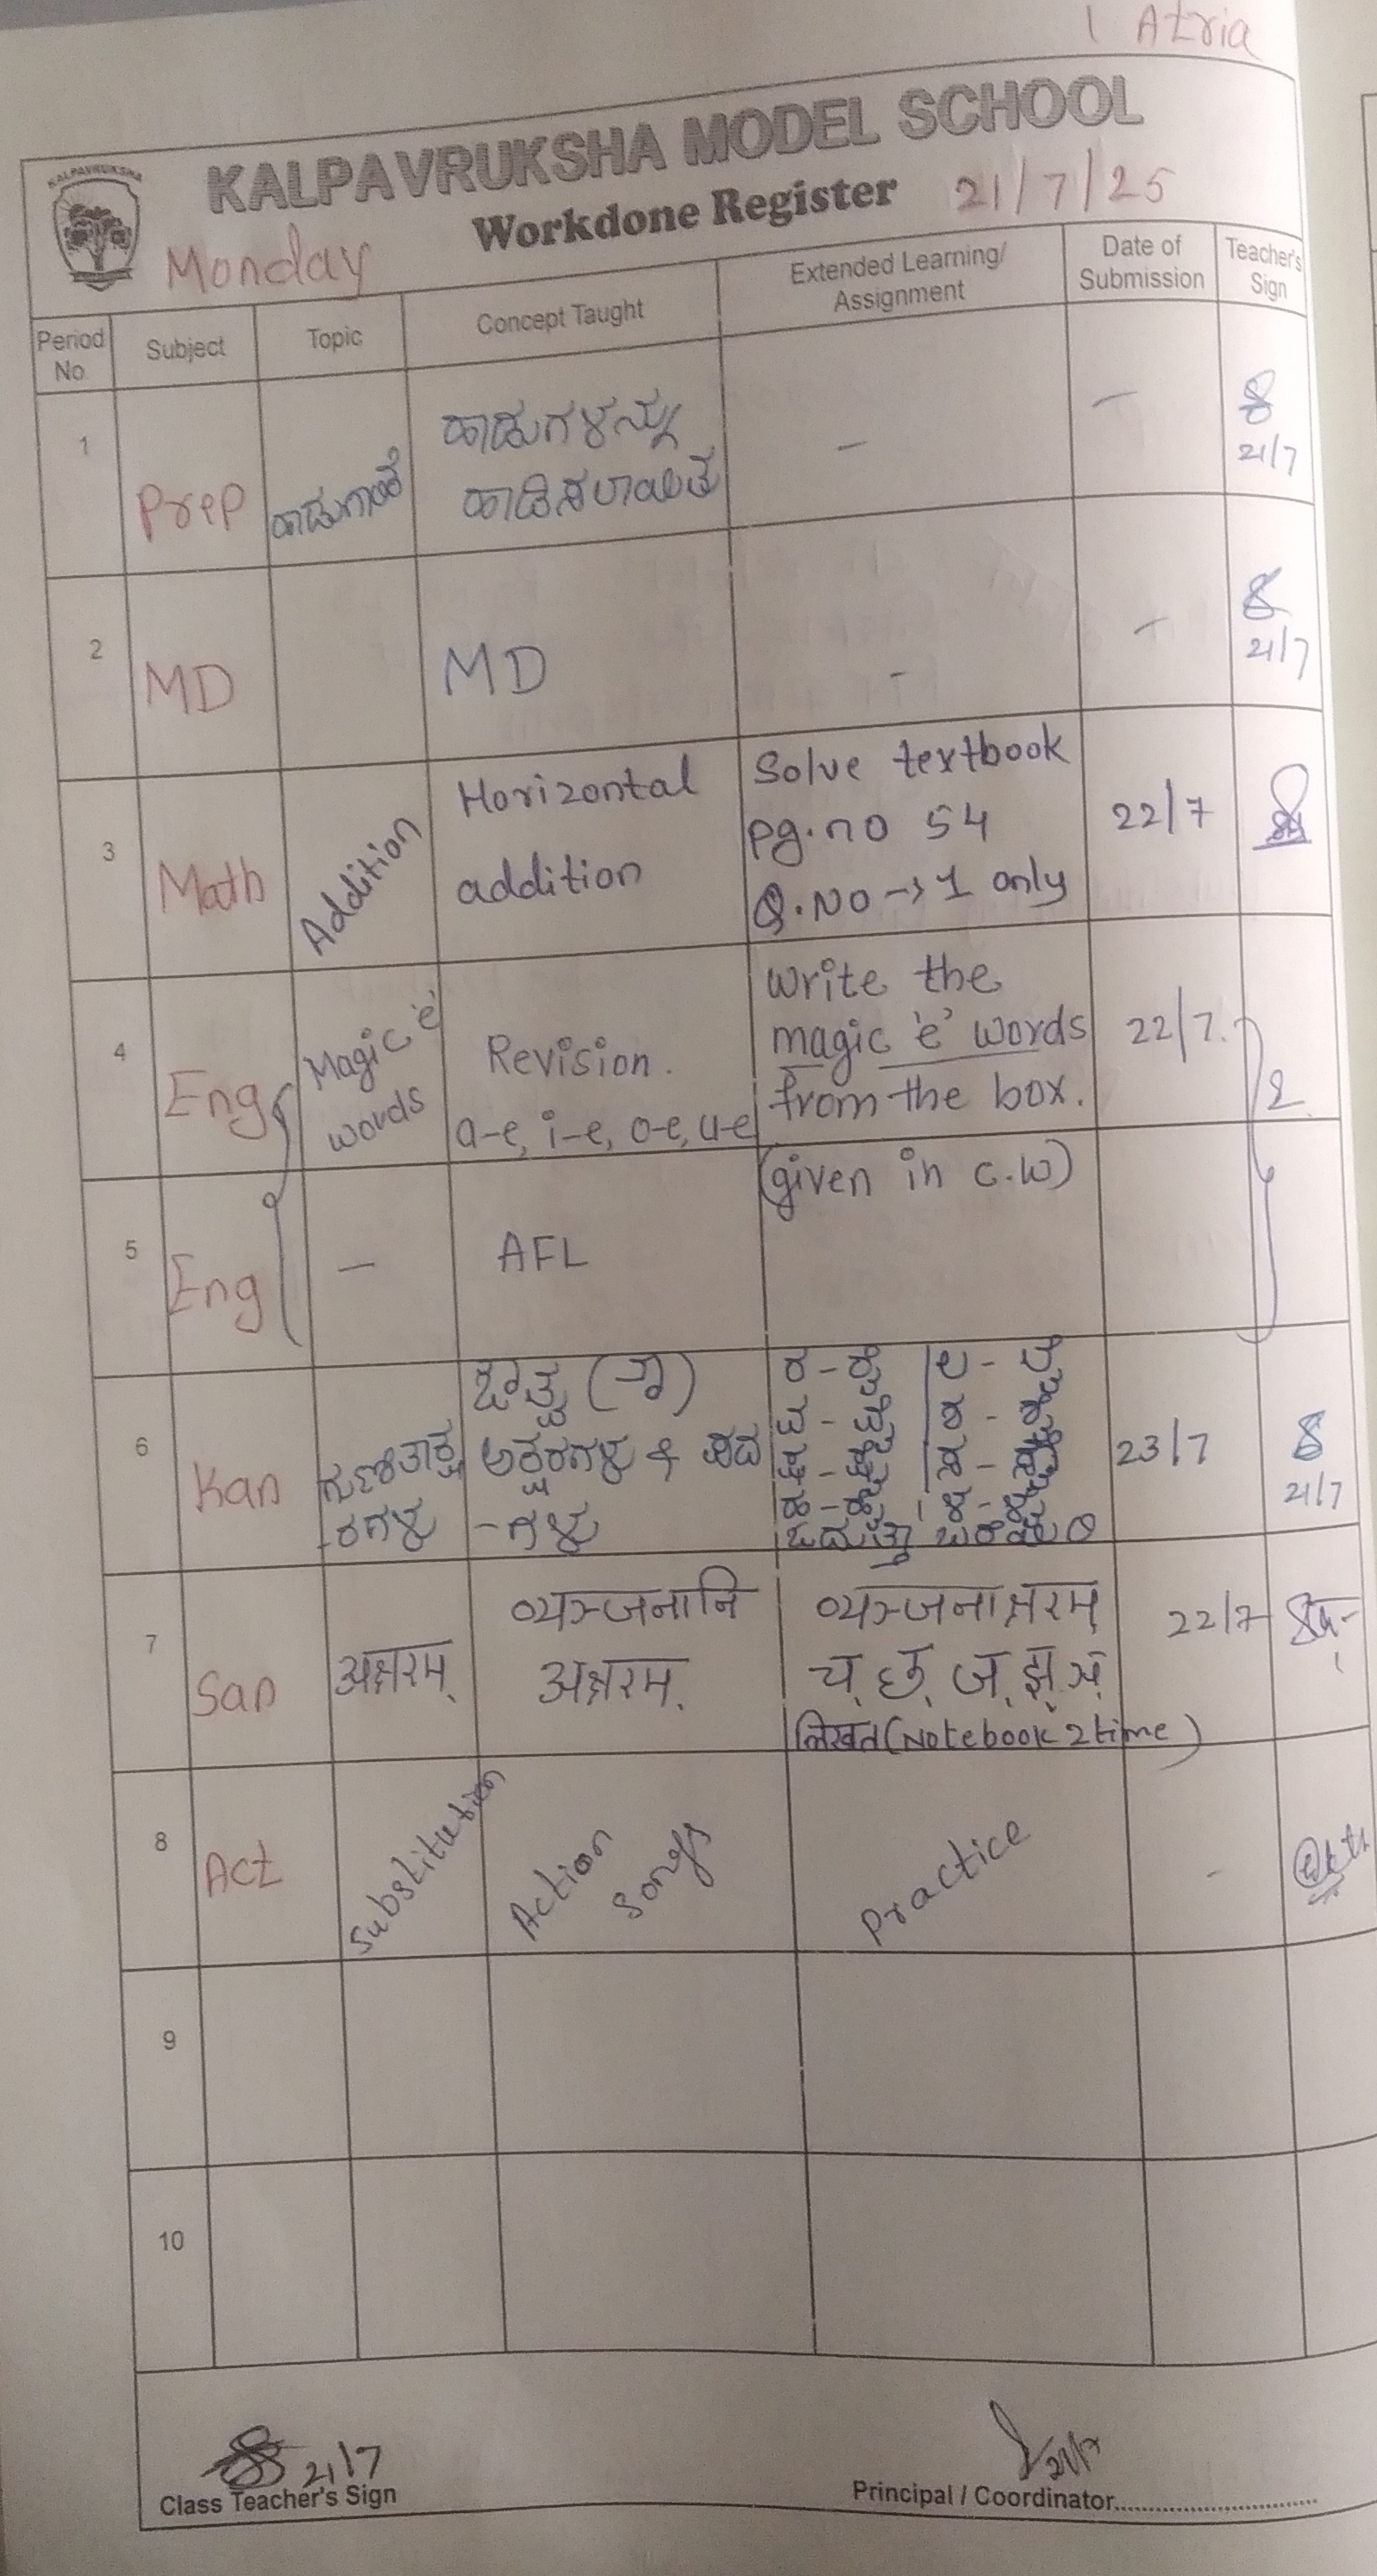 1 Atria
KALPAVRUKSHA
KALPAVRUKSHA MODEL SCHOOL
Workdone Register 21/7/25
Monday
Period No. Subject Topic Concept Taught Extended Learning/ Assignment Date of Submission Teacher's Sign
1 Prep ಹಾಡುಗಾರಿಕೆ ಹಾಡುಗಳನ್ನು - -
ಹಾಡಿಸಲಾಯಿತು 21/7
2 MD MD - - 21/7
3 Math Addition Horizontal addition
Solve textbook
pg.no 54
Q.NO → 1 only
22/7
4 Eng Magic 'e' words
Revision.
a-e, i-e, o-e, u-e
Write the
magic 'e' words
from the box.
22/7.
5 Eng - AFL
(given in c.w)
6 Kan ಗುಣಿತಾಕ್ಷ
-ರಗಳು
ಔತ್ವ (ೌ)
ಅಕ್ಷರಗಳು & ಪದ
-ಗಳು
ಓದುತ್ತಾ ಬರೆಯಿರಿ
23/7
21/7
7 San अक्षरम्
व्यञ्जनानि
अक्षरम्
व्यञ्जनाक्षरम्
च् छ् ज् झ् ञ्
लिखत (Notebook 2 time)
22/7
8 Act Substitution
Action
Songs
Practice
-
9
10
21/7
Class Teacher's Sign
Principal / Coordinator